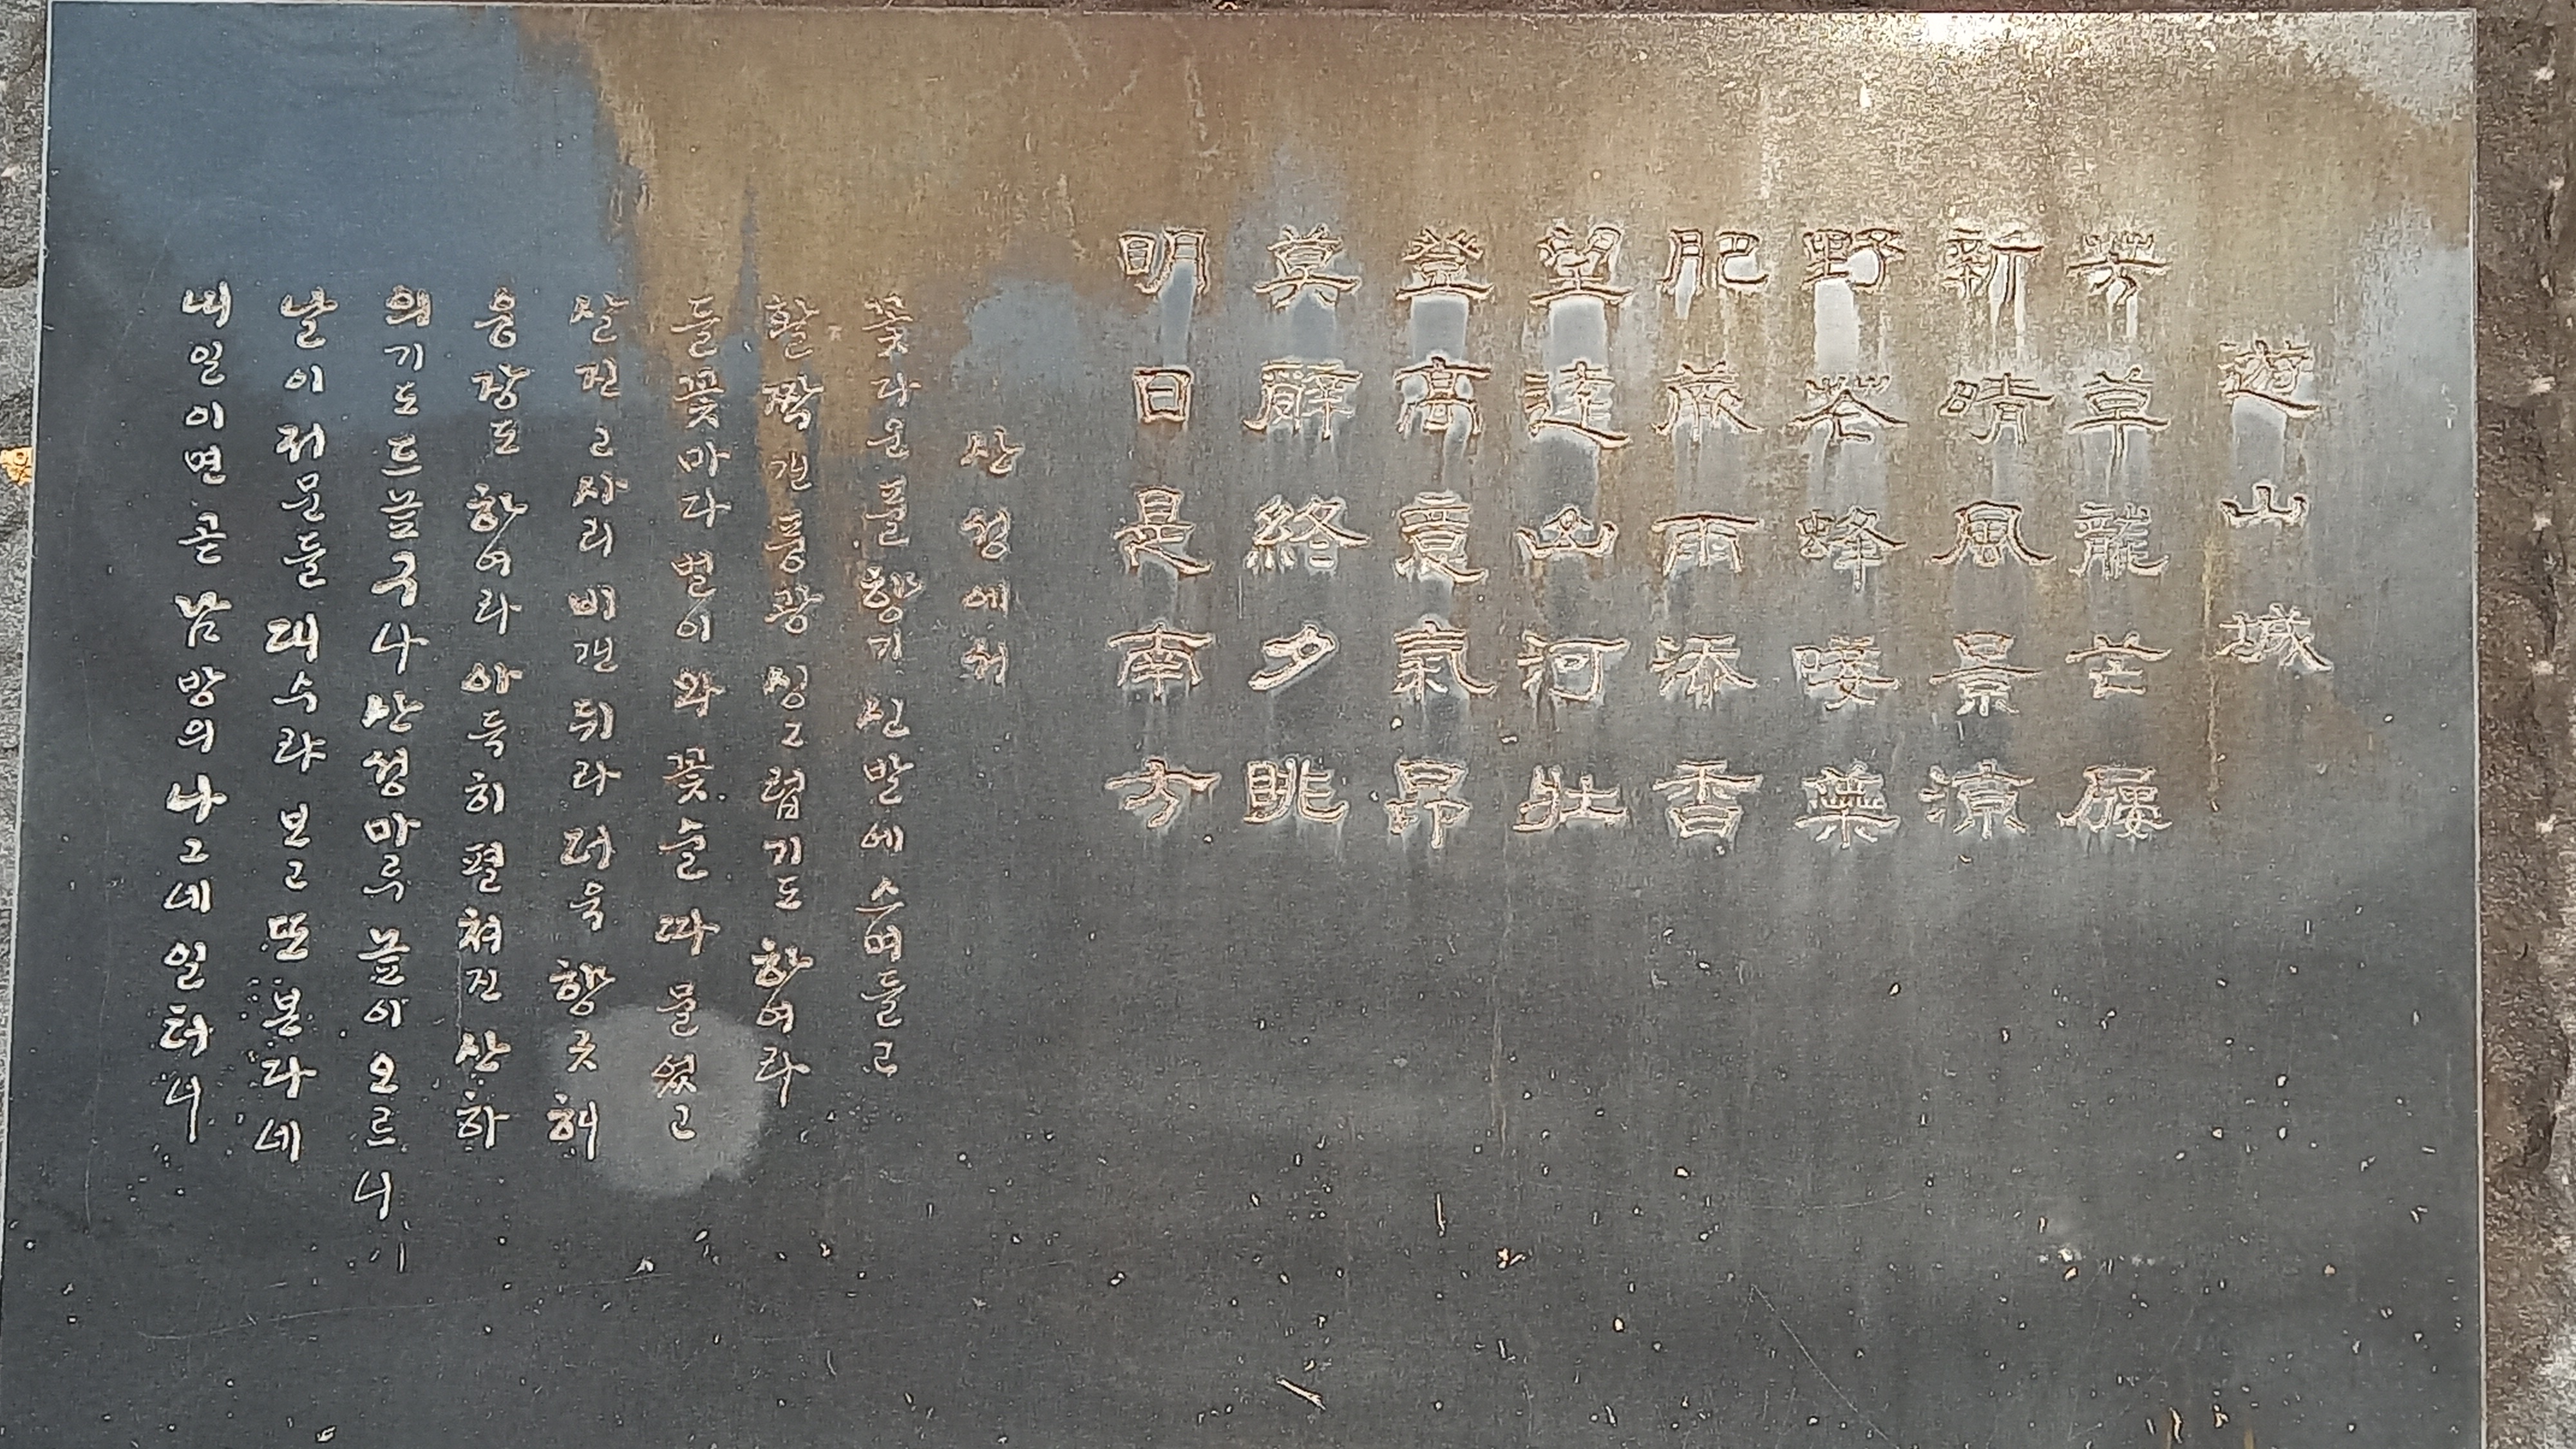 遊山城
芳草龍芒屨
新晴風景涼
野花蜂唼藥
肥蕨雨添香
望遠山河壯
登高意氣昻
莫辭終夕眺
明日是南方
산성에서
꽃다운 풀 향기 신발에 스며들고
활짝 갠 풍광 싱그럽기도 하여라
들꽃마다 벌이 와 꽃술 따 물었고
살진 고사리 비 갠 뒤라 더욱 향긋해
웅장도 하여라 아득히 펼쳐진 산하
의기도 드높구나 산성마루 높이 오르니
날이 저문들 대수랴 보고 또 본다네
내일이면 곧 남방의 나그네 일터니